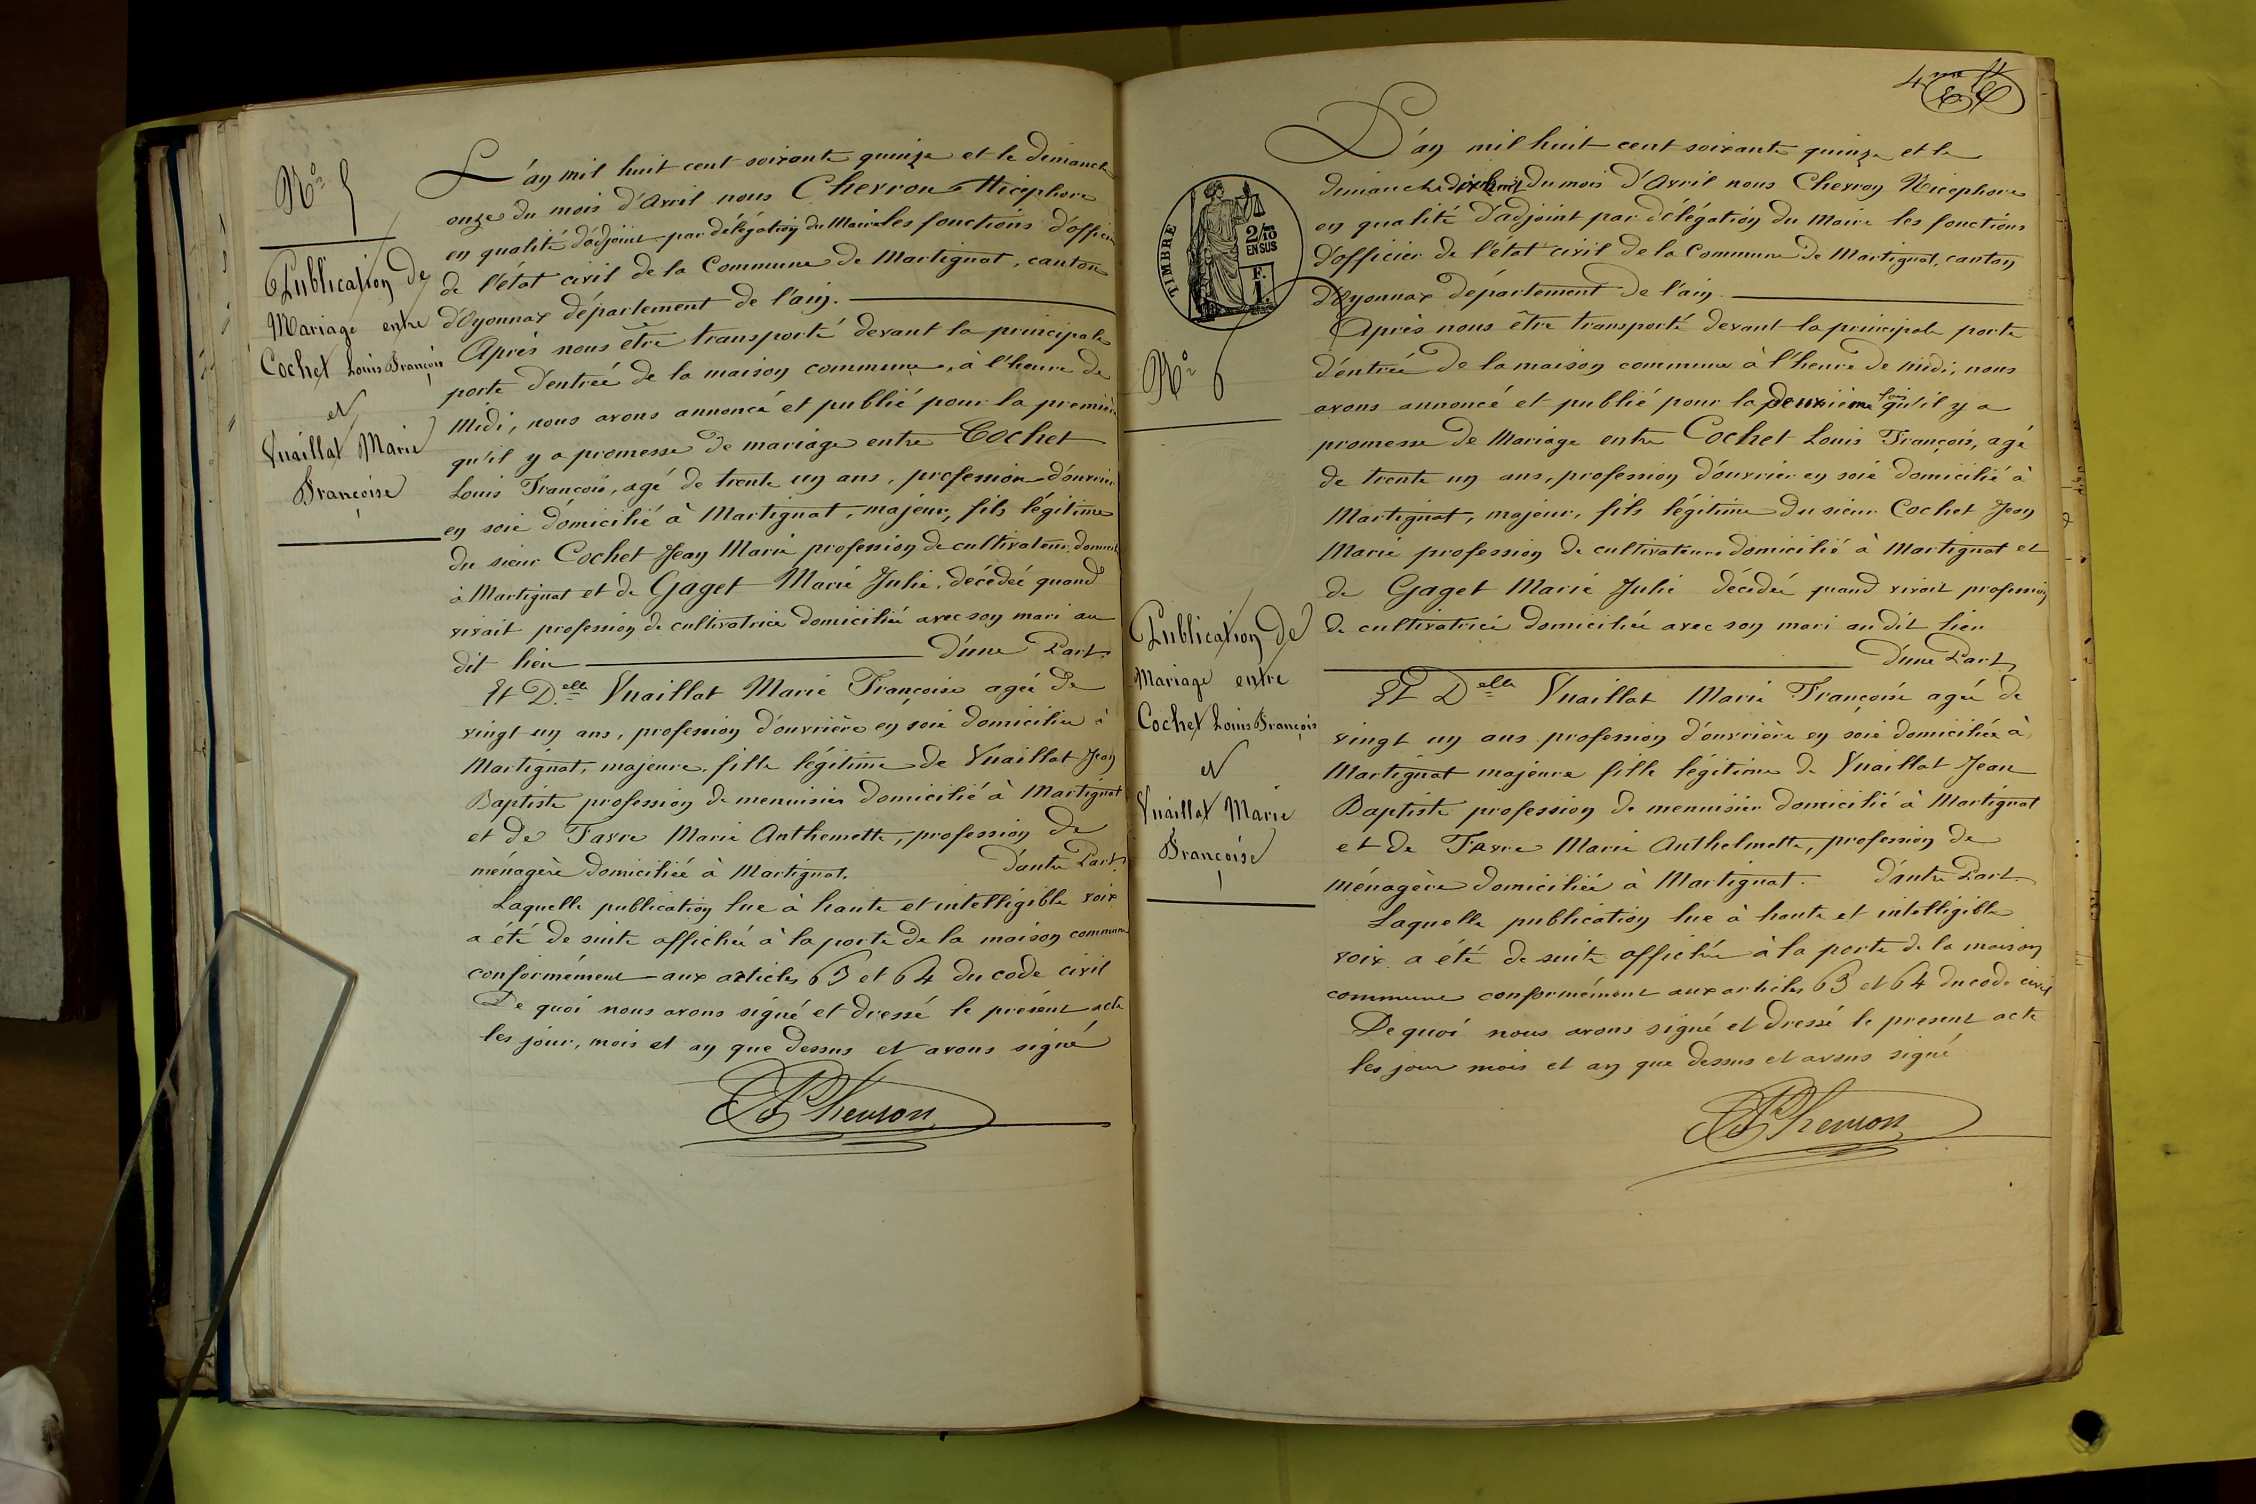 No 5
Publication de
Mariage entre
Cochet Louis François
et
Vuaillat Marie
Françoise
L'an mil huit cent soixante quinze et le dimanche
onze du mois d'Avril nous Chevron Nicephore
en qualité d'adjoint par délégation du Maire les fonctions d'officier
de l'état civil de la Commune de Martignat, canton
d'Oyonnax département de l'ain.
Après nous être transporté devant la principale
porte d'entrée de la maison commune, à l'heure de
midi, nous avons annoncé et publié pour la première
qu'il y a promesse de mariage entre Cochet
Louis François, agé de trente un ans, profession d'ouvrier
en soie domicilié à Martignat, majeur, fils légitime
du sieur Cochet Jean Marie profession de cultivateur, domicil
à Martignat et de Gaget Marie Julie, décédée quand
vivait profession de cultivatrice domiciliée avec son mari au
dit lieu d'une Part.
Et Delle Vuaillat Marie Françoise agée de
vingt un ans, profession d'ouvrière en soie domiciliée à
Martignat, majeure, fille légitime de Vuaillat Jean
Baptiste profession de menuisier domicilié à Martignat
et de Favre Marie Anthemette, profession de
ménagère domiciliée à Martignat. d'autre Part.
Laquelle publication lue à haute et intelligible voix
a été de suite affichée à la porte de la maison commune
conformément aux articles 63 et 64 du code civil
De quoi nous avons signé et dressé le présent acte
les jour, mois et an que dessus et avons signé
Chevron
4me
TIMBRE
2/10
EN SUS
F.
1.
No 6
Publication de
Mariage entre
Cochet Louis François
et
Vuaillat Marie
Françoise
L'an mil huit cent soixante quinze et le
dimanche dix huit du mois d'Avril nous Chevron Nicephore
en qualité d'adjoint par délégation du Maire les fonctions
d'officier de l'état civil de la Commune de Martignat, canton
d'Oyonnax département de l'ain.
Après nous être transporté devant la principale porte
d'entrée de la maison commune à l'heure de midi, nous
avons annoncé et publié pour la deuxième fois qu'il y a
promesse de Mariage entre Cochet Louis François, agé
de trente un ans, profession d'ouvrier en soie domicilié à
Martignat, majeur, fils légitime du sieur Cochet Jean
Marie profession de cultivateur domicilié à Martignat et
de Gaget Marie Julie décédée quand vivait profession
de cultivatrice domiciliée avec son mari au dit lieu
d'une Part
Et Delle Vuaillat Marie Françoise agée de
vingt un ans profession d'ouvrière en soie domiciliée à
Martignat majeure fille légitime de Vuaillat Jean
Baptiste profession de menuisier domicilié à Martignat
et de Favre Marie Anthelmette, profession de
ménagère domiciliée à Martignat. d'autre Part.
Laquelle publication lue à haute et intelligible
voix a été de suite affichée à la porte de la maison
commune conformément aux articles 63 et 64 du code civil
De quoi nous avons signé et dressé le present acte
les jour mois et an que dessus et avons signé
Chevron